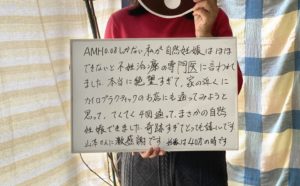 AMH0.08しかない私が自然妊娠はほぼ
できないと不妊治療の専門医に言われて
ました。本当に絶望すぎて、家の近くに
カイロプラクティックのお店にも通ってみようと
思って、てくてく4回通って、まさかの自然
妊娠できました。奇跡すぎてとっても嬉しいです。
山本さんに激感謝です 妊娠は40才の時です